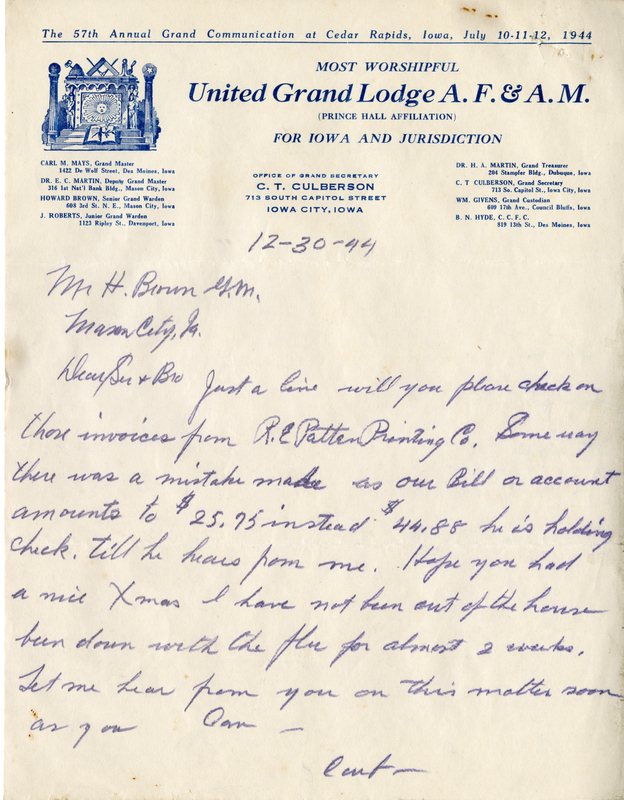 The 57th Annual Grand Communication at Cedar Rapids, Iowa, July 10-11-12, 1944
MOST WORSHIPFUL
United Grand Lodge A. F. & A. M.
(PRINCE HALL AFFILIATION)
FOR IOWA AND JURISDICTION
CARL M. MAYS, Grand Master
1422 De Wolf Street, Des Moines, Iowa
DR. E. C. MARTIN, Deputy Grand Master
316 1st Nat'l Bank Bldg., Mason City, Iowa
HOWARD BROWN, Senior Grand Warden
608 3rd St. N. E., Mason City, Iowa
J. ROBERTS, Junior Grand Warden
1123 Ripley St., Davenport, Iowa
OFFICE OF GRAND SECRETARY
C. T. CULBERSON
713 SOUTH CAPITOL STREET
IOWA CITY, IOWA
DR. H. A. MARTIN, Grand Treasurer
204 Stampfer Bldg., Dubuque, Iowa
C. T CULBERSON, Grand Secretary
713 So. Capitol St., Iowa City, Iowa
WM. GIVENS, Grand Custodian
609 17th Ave., Council Bluffs, Iowa
B. N. HYDE, C. C. F. C.
819 13th St., Des Moines, Iowa
12-30-44
Mr H. Brown G.M.
Mason City, Ia.
Dear Sir & Bro Just a line will you please check on
those invoices from R.E Patten Printing Co. Some way
there was a mistake made as our Bill or account
amounts to $25.75 instead $44.88 he is holding
check. till he hears from me. Hope you had
a nice Xmas I have not been out of the house
been down with the flu for almost 2 weeks.
Let me hear from you on this matter soon
as you Can —